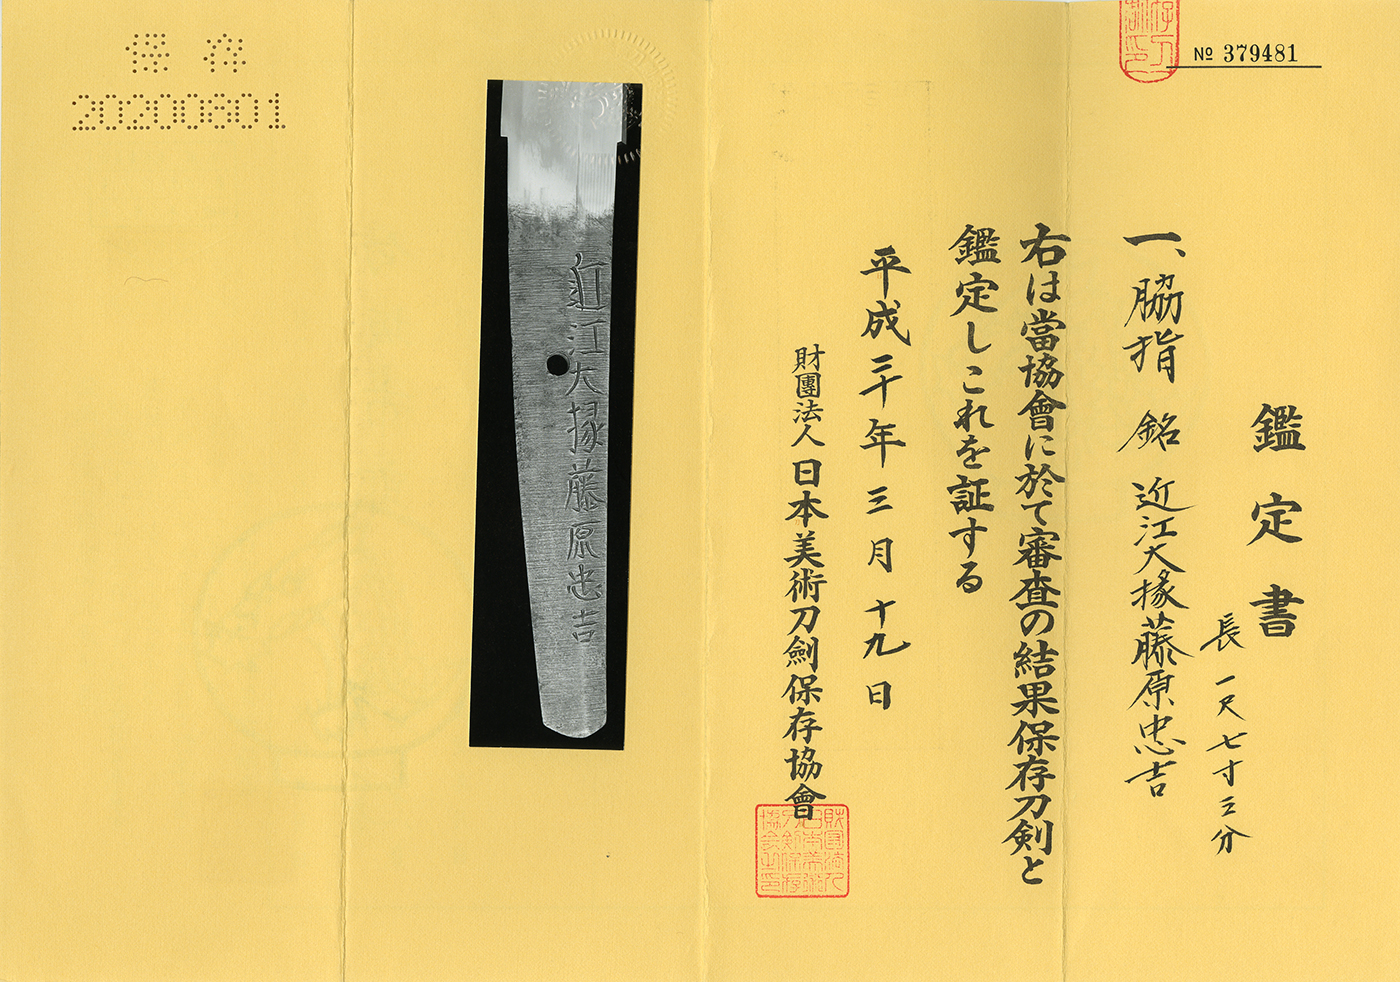 № 379481
鑑定書
一、脇指 銘 近江大掾藤原忠吉
長 一尺七寸三分
右は當協會に於て審査の結果保存刀剣と
鑑定しこれを証する
平成三十年三月十九日
財團法人 日本美術刀劍保存協會
近江大掾藤原忠吉
保存
20200801